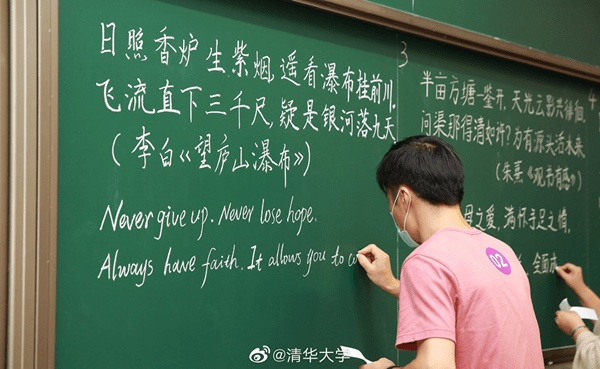 日照香炉生紫烟,遥看瀑布挂前川.
飞流直下三千尺,疑是银河落九天
(李白《望庐山瀑布》)
Never give up. Never lose hope.
Always have faith. It allows you to co
3
半亩方塘一鉴开,天光云影共徘徊.
问渠那得清如许?为有源头活水来
(朱熹《观书有感》)
母之爱,满怀手足之情,
长,全面成
4
02
@清华大学